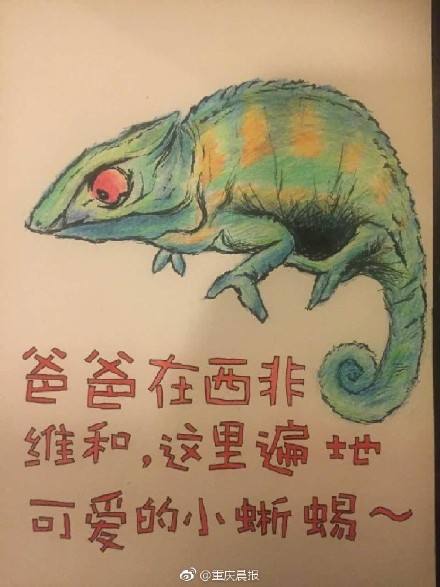 爸爸在西非
维和，这里遍地
可爱的小蜥蜴～
@重庆晨报